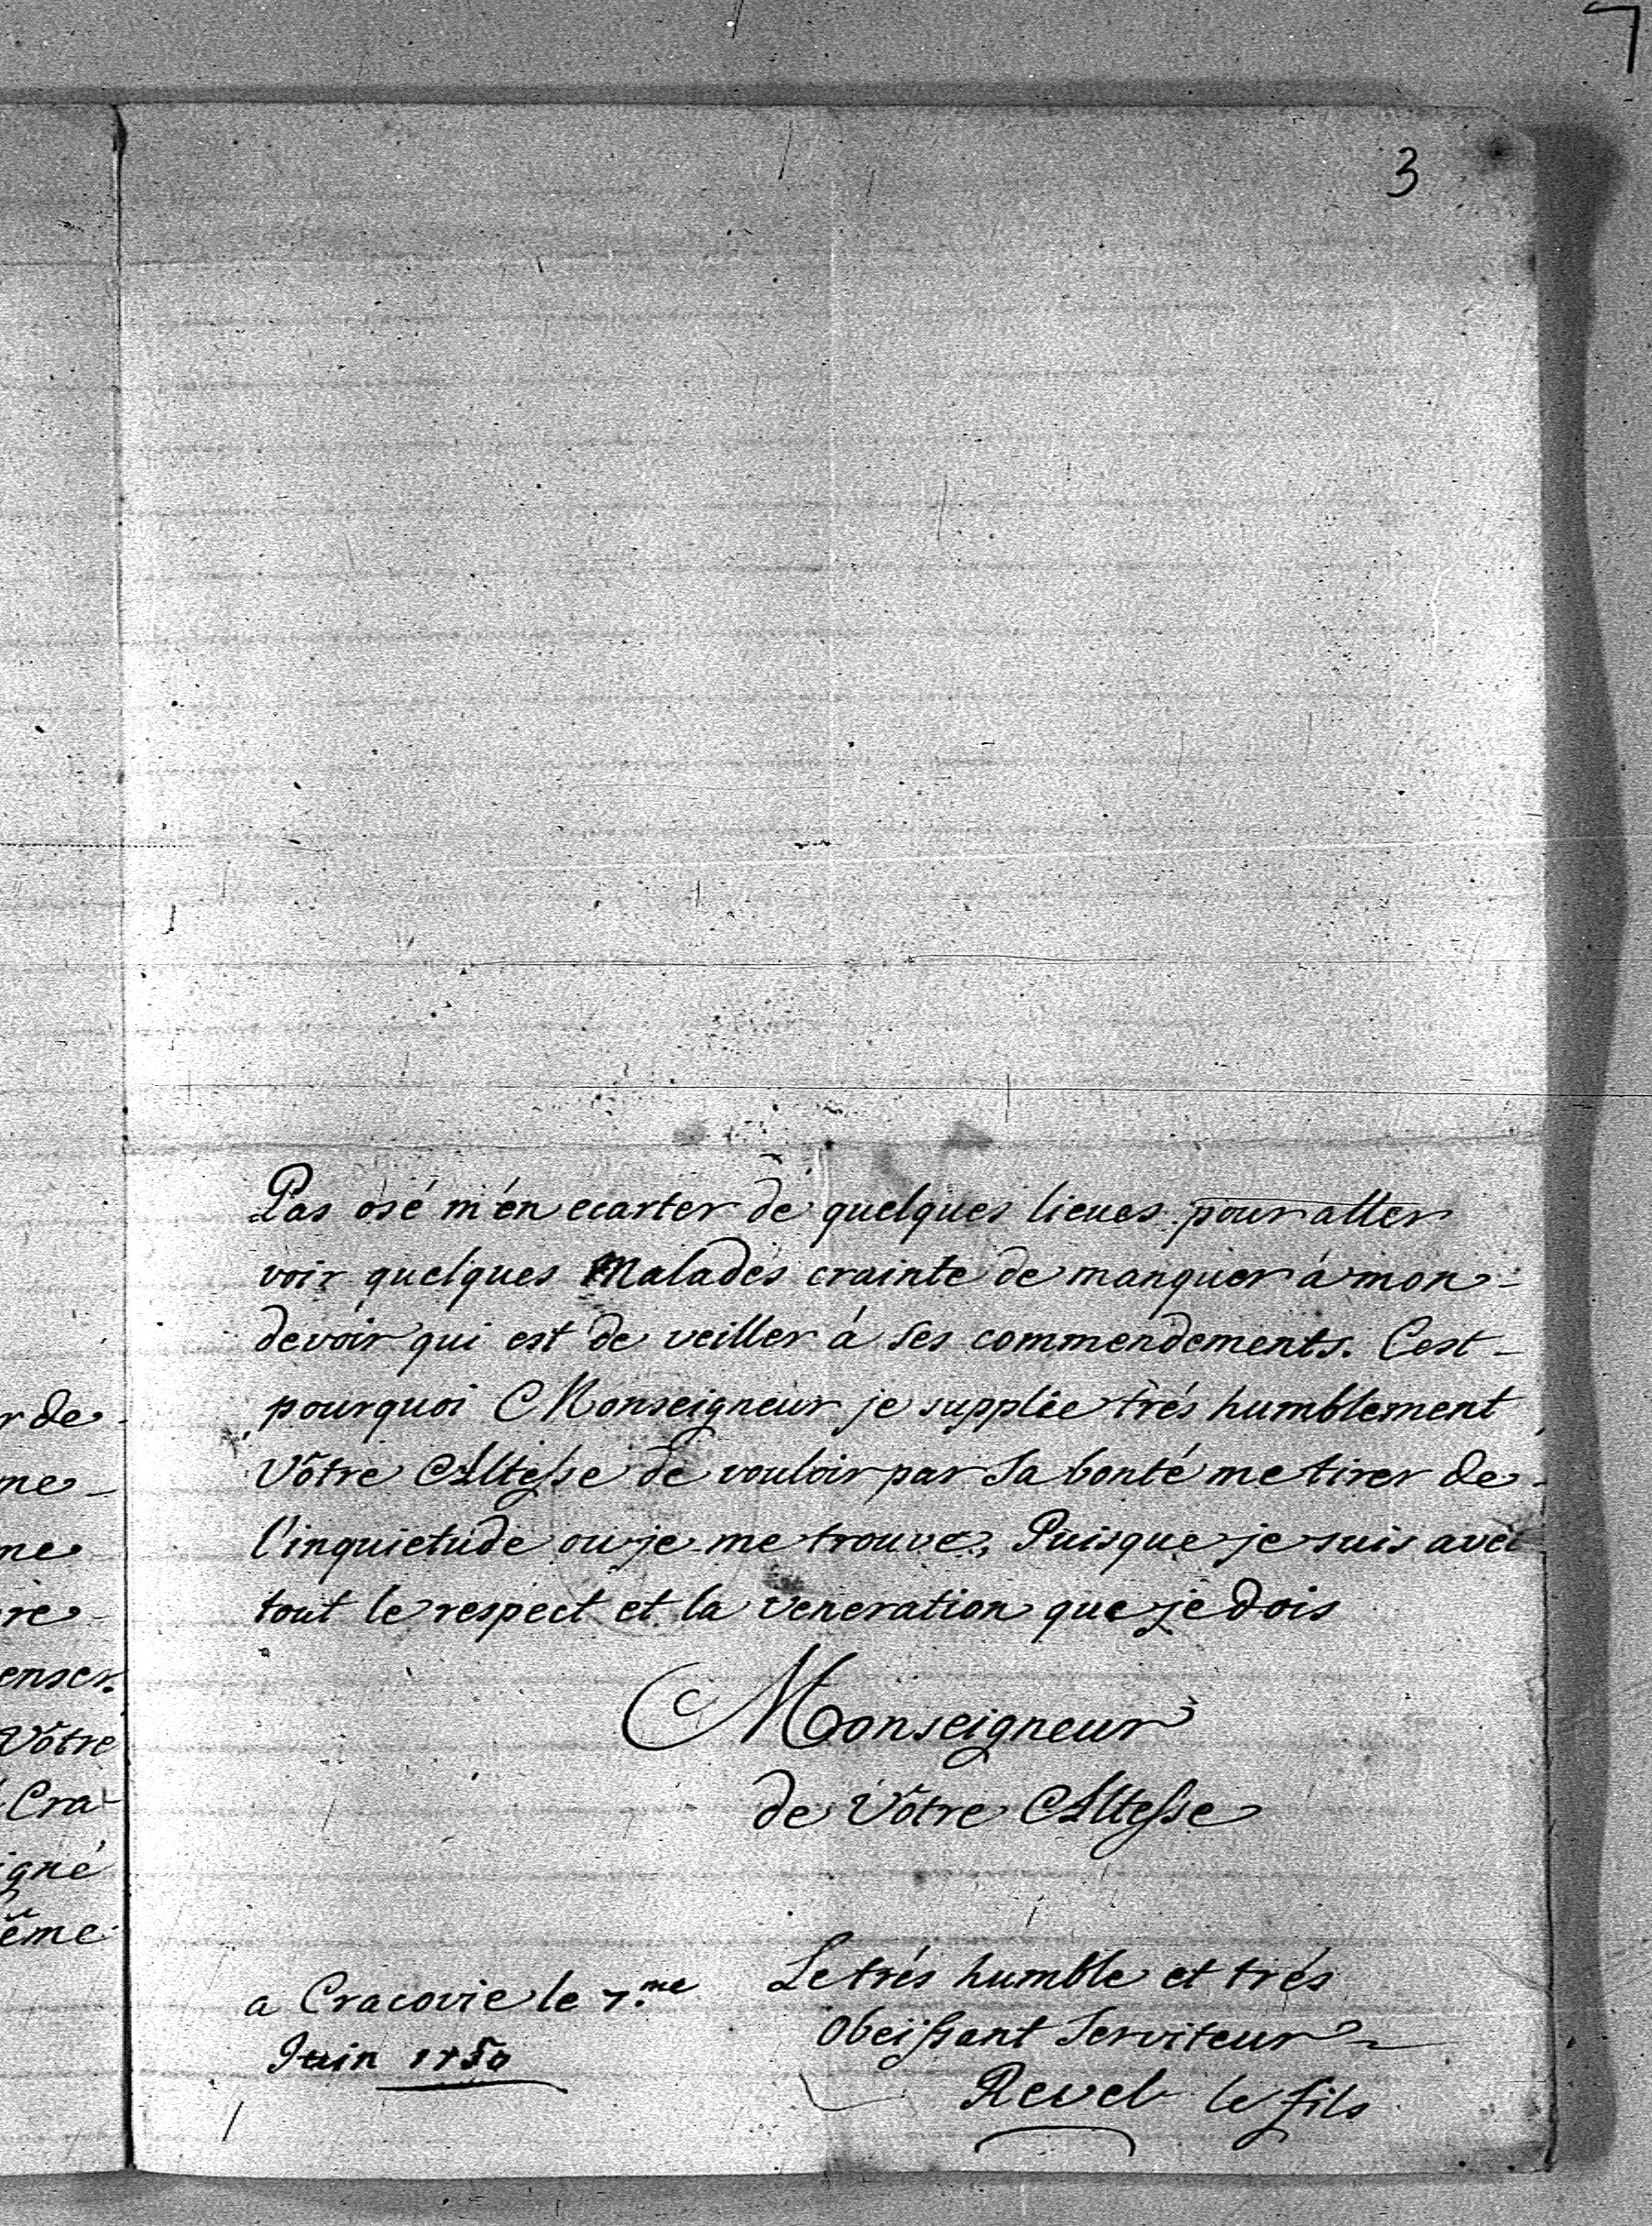 7
3
Pas osé m'en ecarter de quelques lieues pour aller
voir quelques Malades crainte de manquer á mon
devoir qui est de veiller á ses commendements. C'est
pourquoi Monseigneur je supplie trés humblement
Vôtre Altesse de vouloir par Sa bonté me tirer de
l'inquietude ou je me trouve, Puisque je suis avec
tout le respect et la veneration que je dois
Monseigneur
de Vôtre Altesse
Le trés humble et trés
Obeïssant Serviteur
Revel le fils
a Cracovie le 7.me
Juin 1750
r de
me
me
re
enser.
Vôtre
Cra-
igné
ême